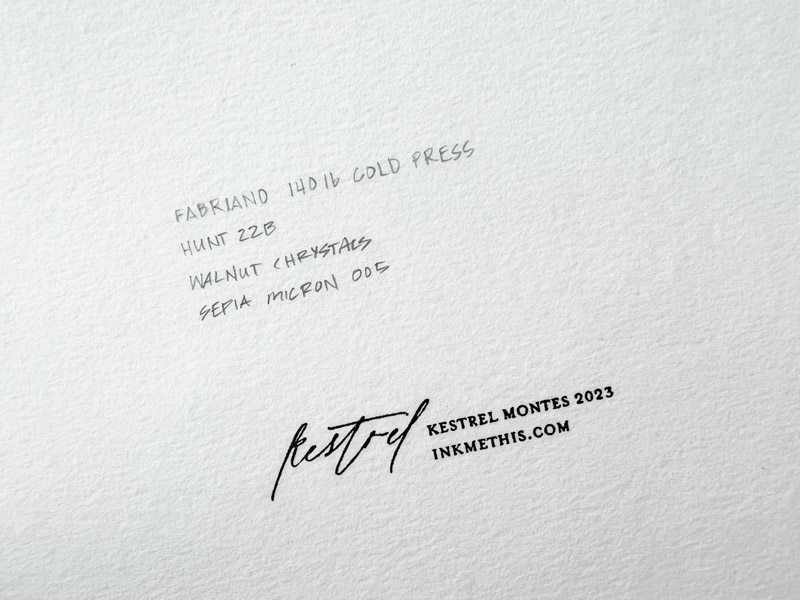 FABRIANO 140 lb COLD PRESS
HUNT 22B
WALNUT CHRYSTALS
SEPIA MICRON 005
kestrel
KESTREL MONTES 2023
INKMETHIS.COM